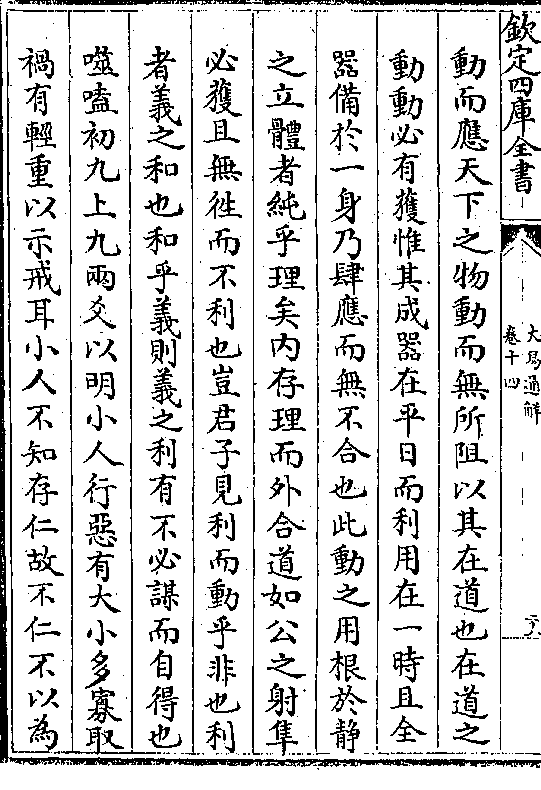 欽定四庫全書
大易通解
卷十四
動而應天下之物動而無所阻以其在道也在道之
動動必有獲惟其成器在平日而利用在一時且全
器備於一身乃肆應而無不合也此動之用根於静
之立體者純乎理矣内存理而外合道如公之射隼
必獲且無徃而不利也豈君子見利而動乎非也利
者義之和也和乎義則義之利有不必謀而自得也
噬嗑初九上九兩爻以明小人行惡有大小多寡取
禍有輕重以示戒耳小人不知存仁故不仁不以為